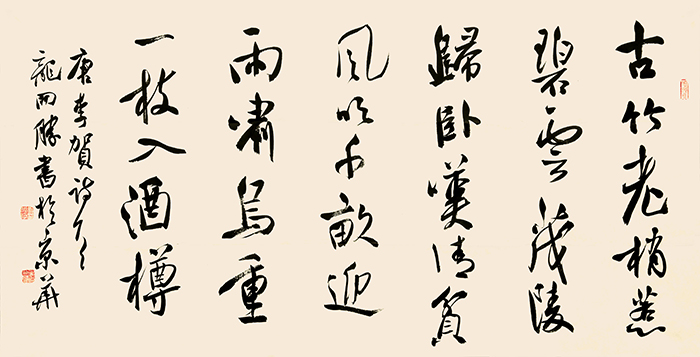 古竹老梢惹
碧雲茂陵
歸卧嘆清貧
風吹千畝迎
雨嘯鳥重
一枝入酒樽
唐李賀詩
龍開勝書於京華